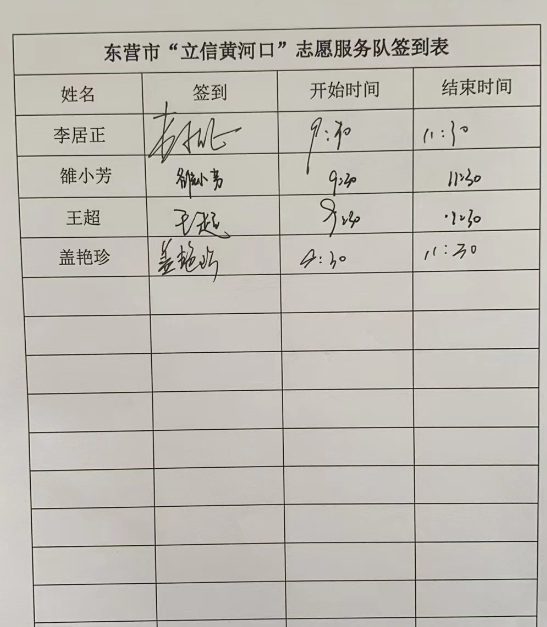 东营市“立信黄河口”志愿服务队签到表
姓名 签到 开始时间 结束时间
李居正 9:30 11:30
雒小芳 雒小芳 9:30 11:30
王超 王超 9:30
盖艳珍 盖艳珍 9:30 11:30